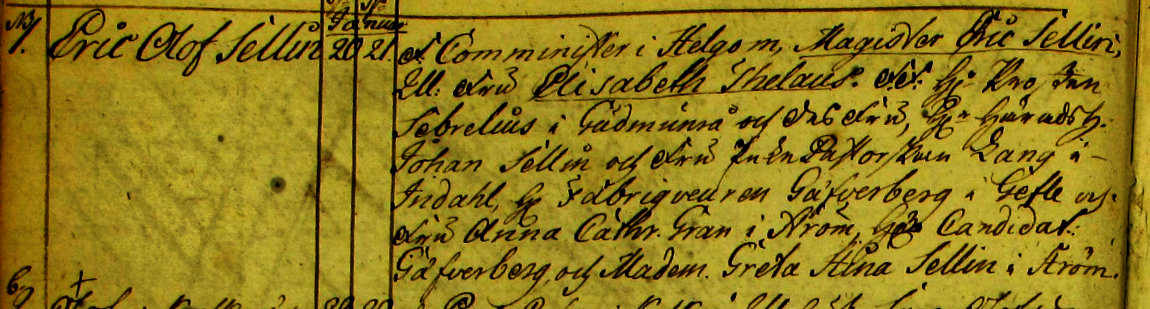 Januar
N 1. Eric Olof Sellin 20 21. F. Comminister i Helgom, Magister Eric Sellin,
M: Fru Elisabeth Thelaus. F.F. Hr Prosten
Sebrelius i Gudmunrå och dess Fru, Hr Häradsh:
Johan Sellin och Fru Pastorskan Lang i
Indahl, Hr Fabriqveuren Gäfverberg i Gefle och
Fru Anna Cathr. Gran i Ström, Hr Candidat:
Gäfverberg, och Madem. Greta Stina Sellin i Ström.